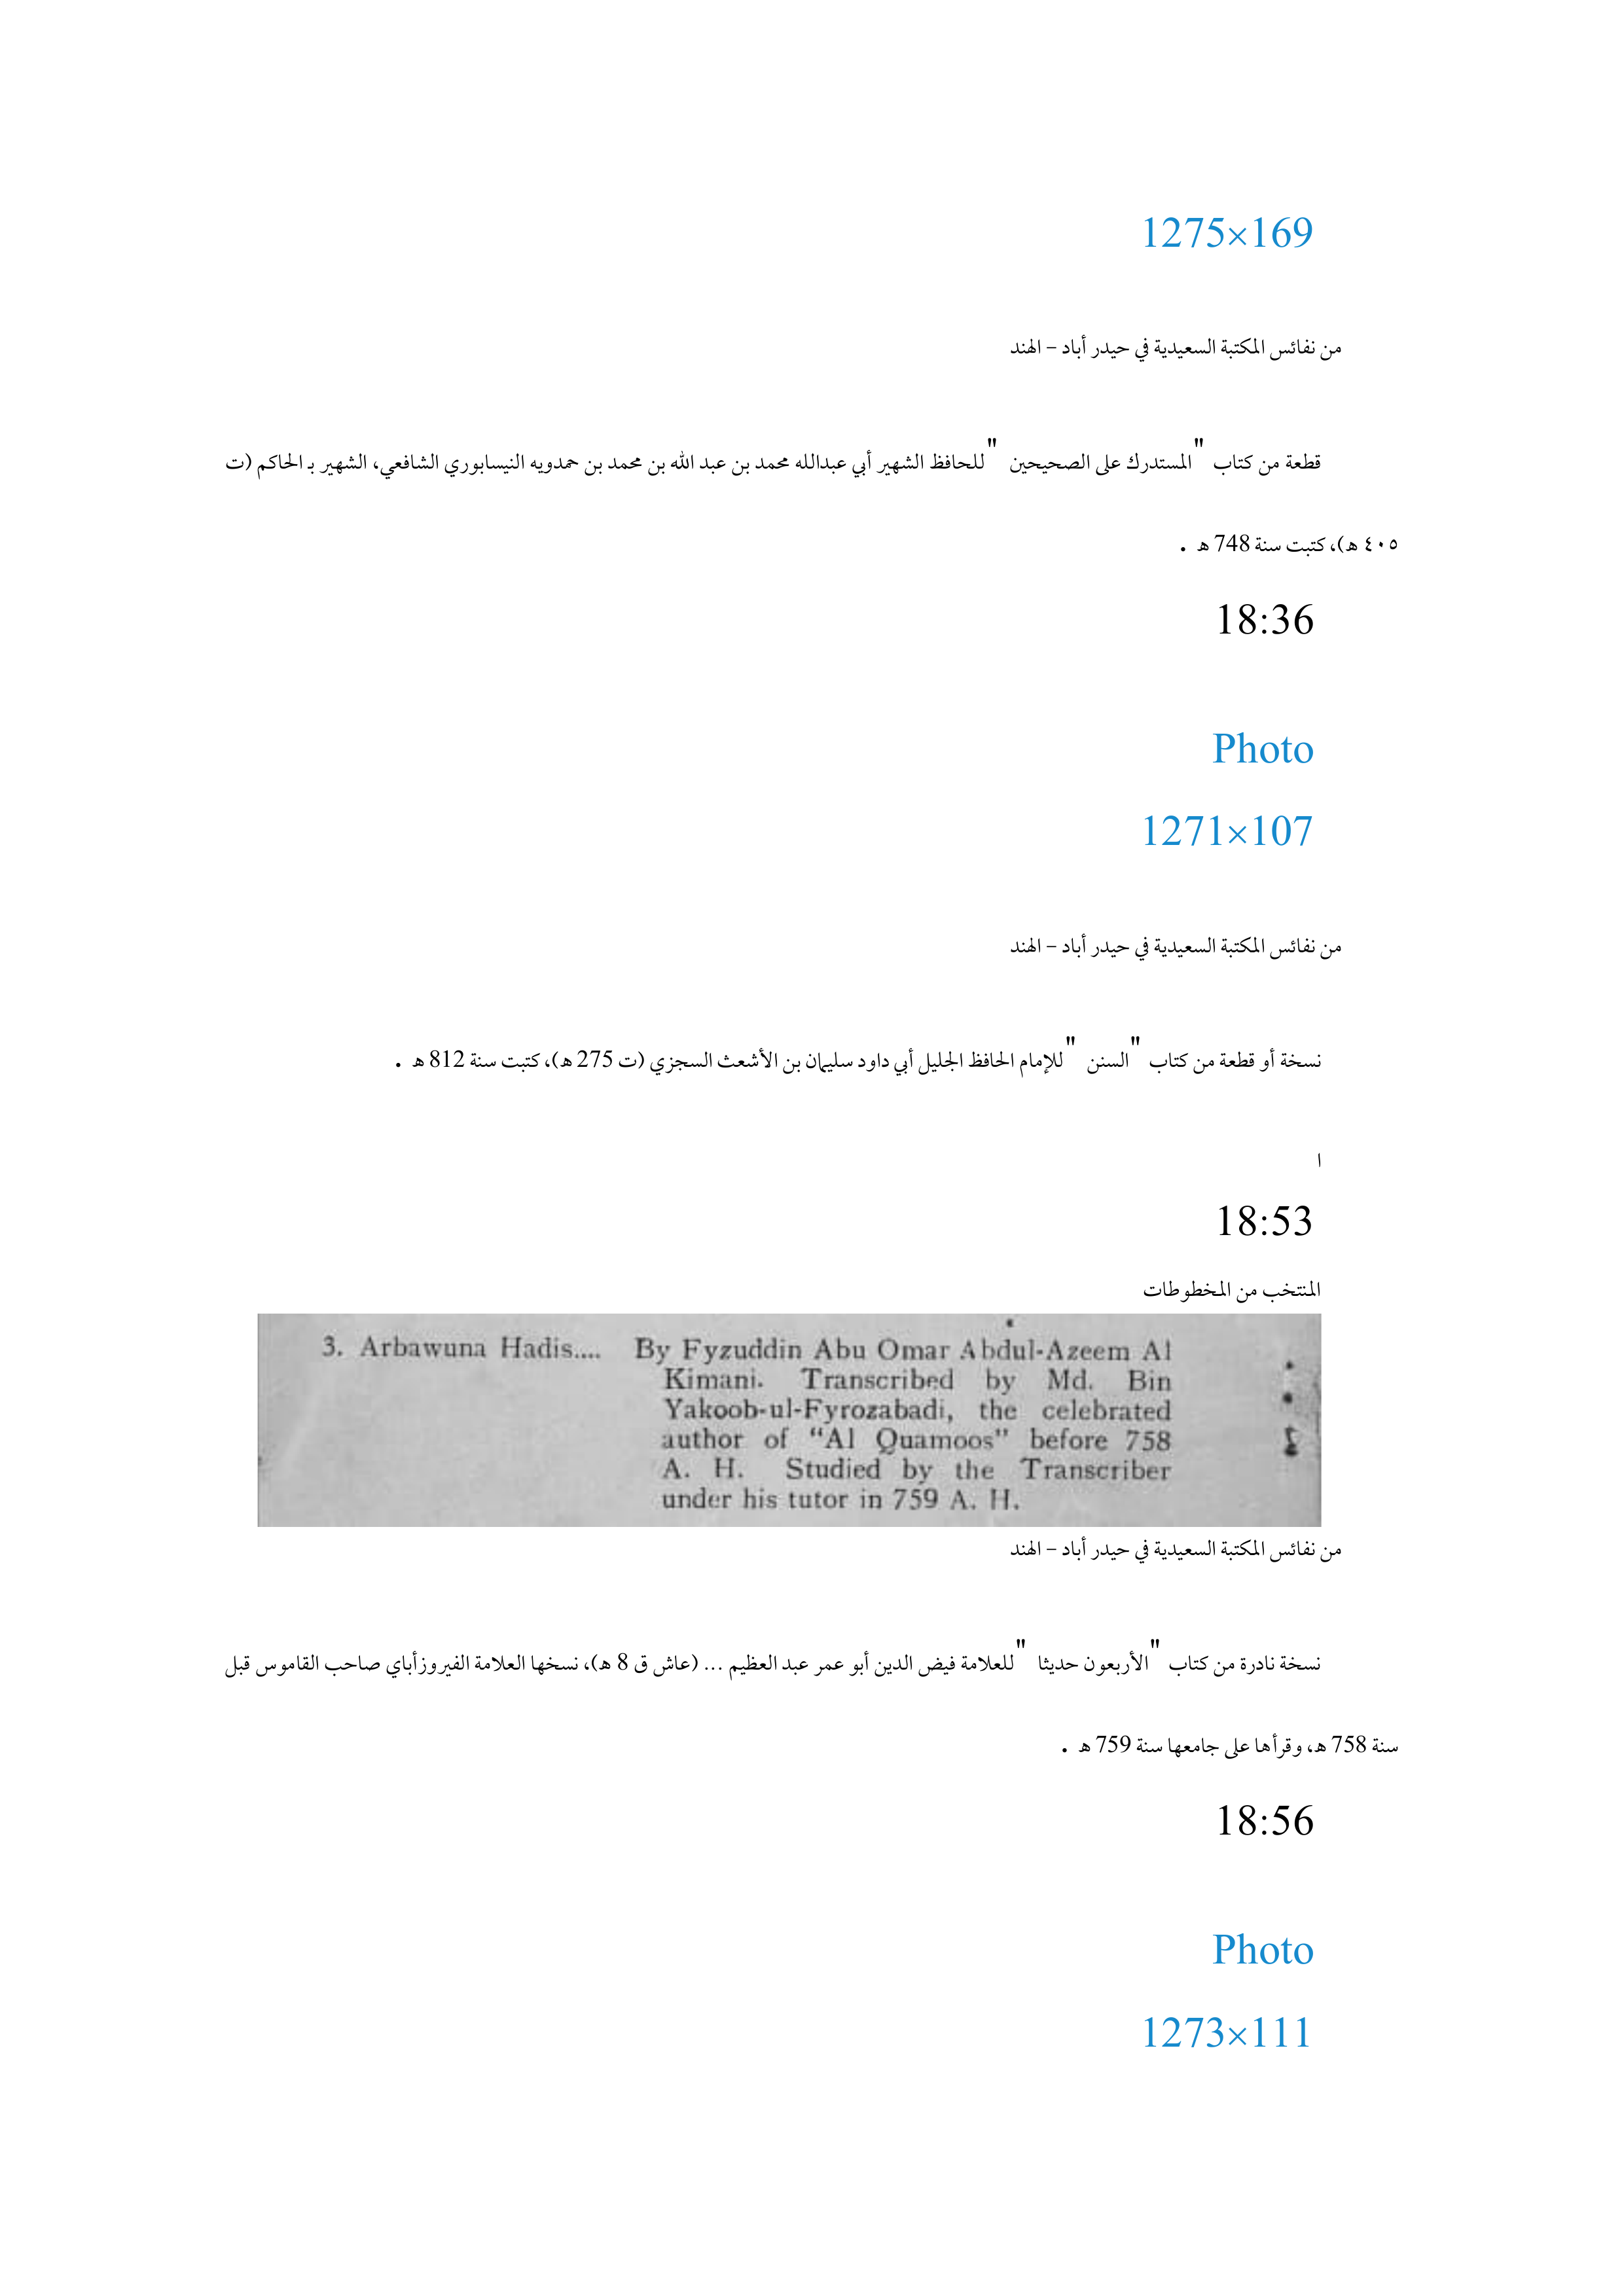 1275×169
من نفائس المكتبة السعيدية في حيدر أباد – الهند
قطعة من كتاب "المستدرك على الصحيحين "للحافظ الشهير أبي عبدالله محمد بن عبد الله بن محمد بن حمدويه النيسابوري الشافعي، الشهير بـ الحاكم (ت
٤٠٥ هـ)، كتبت سنة 748 هـ .
18:36
Photo
1271×107
من نفائس المكتبة السعيدية في حيدر أباد – الهند
نسخة أو قطعة من كتاب "السنن "للإمام الحافظ الجليل أبي داود سليمان بن الأشعث السجزي (ت 275 هـ)، كتبت سنة 812 هـ .
ا
18:53
المنتخب من المخطوطات
3. Arbawuna Hadis.... By Fyzuddin Abu Omar Abdul-Azeem Al
Kimani. Transcribed by Md. Bin
Yakoob-ul-Fyrozabadi, the celebrated
author of “Al Quamoos” before 758
A. H. Studied by the Transcriber
under his tutor in 759 A. H.
من نفائس المكتبة السعيدية في حيدر أباد – الهند
نسخة نادرة من كتاب "الأربعون حديثا "للعلامة فيض الدين أبو عمر عبد العظيم ... (عاش ق 8 هـ)، نسخها العلامة الفيروزأباي صاحب القاموس قبل
سنة 758 هـ، وقرأها على جامعها سنة 759 هـ .
18:56
Photo
1273×111